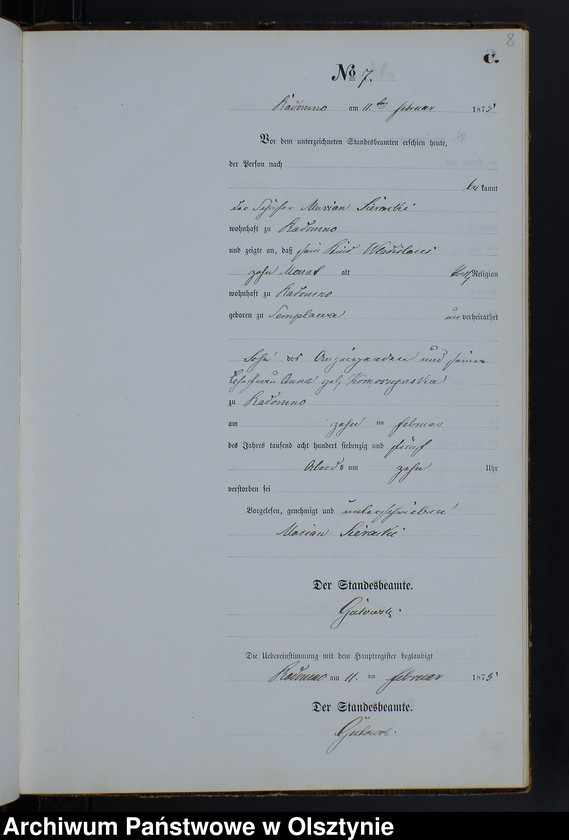 8
C.
No 7.
Radomno am 11ten Februar 1875
Vor dem unterzeichneten Standesbeamten erschien heute,
der Person nach
bekannt
der Marian Sieracki
wohnhaft zu Radomno
und zeigte an, daß sein Kind Wladislaus
zehn Monat alt kath. Religion
wohnhaft zu Radomno
geboren zu Templawa unverheirathet
Sohn des Anzeigenden und seiner
Ehefrau Anna geb. Komorzynska
zu Radomno
am zehn ten Februar
des Jahres tausend acht hundert siebenzig und fünf
Abends um zehn Uhr
verstorben sei
Vorgelesen, genehmigt und unterschrieben
Marian Sieracki
Der Standesbeamte.
Die Uebereinstimmung mit dem Hauptregister beglaubigt
Radomno am 11. ten Februar 1875
Der Standesbeamte.
Archiwum Państwowe w Olsztynie